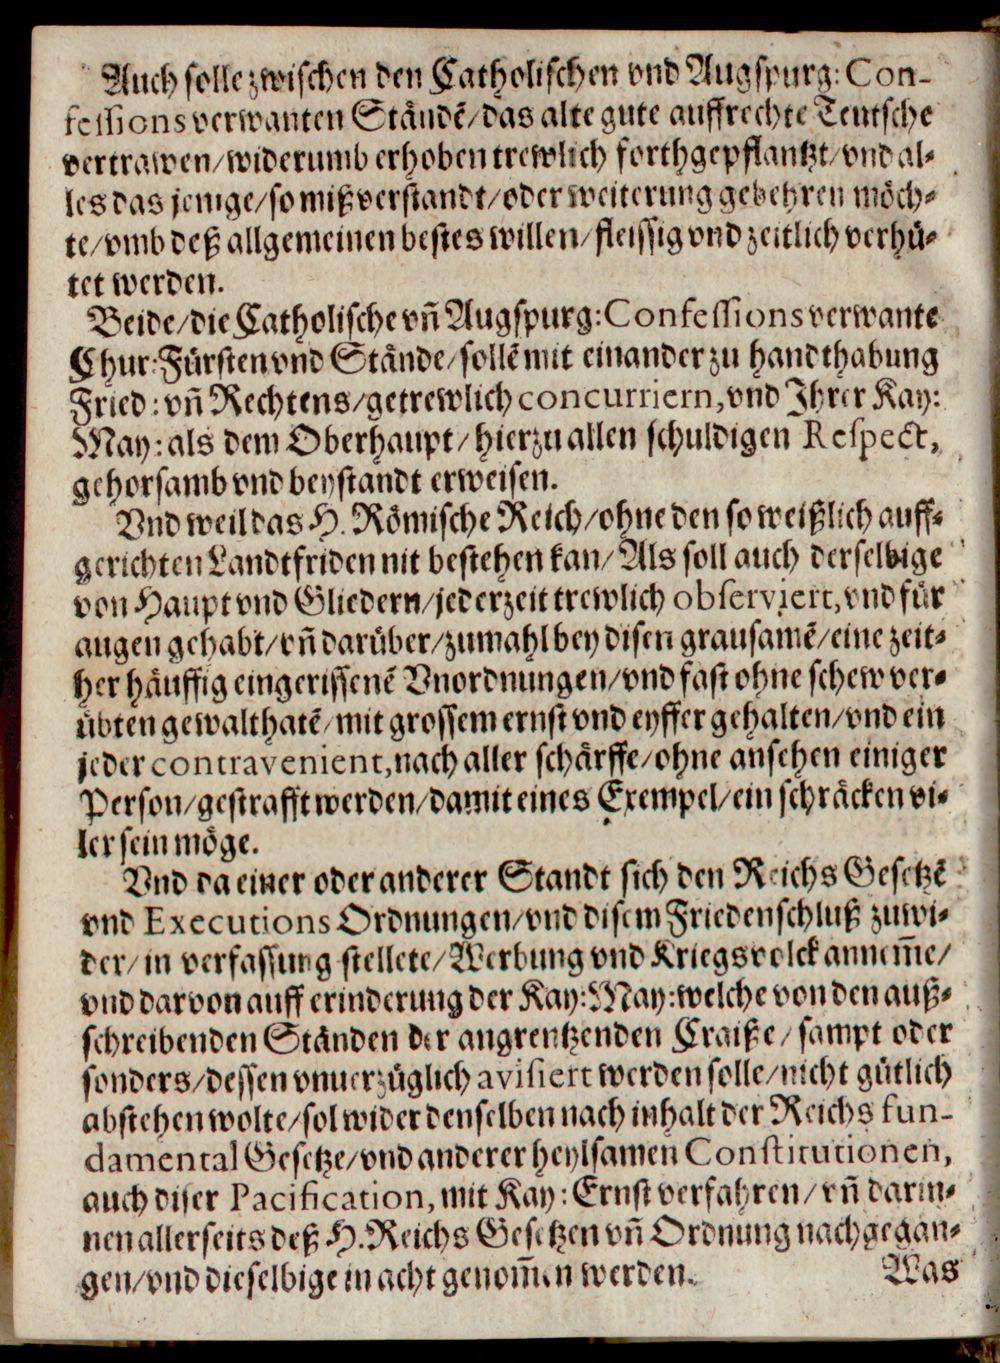 Auch solle zwischen den Catholischen vnd Augspurg: Con-
fessions verwanten Ständẽ/das alte gute auffrechte Teutsche
vertrawen/widerumb erhoben trewlich forthgepflantzt/vnd al-
les das jenige/so mißverstandt/oder weiterung gebehren möch-
te/vmb deß allgemeinen bestes willen/fleissig vnd zeitlich verhü-
tet werden.
Beide/die Catholische vñ Augspurg: Confessions verwante
Chur-Fürsten vnd Stände/sollẽ mit einander zu handthabung
Fried: vñ Rechtens/getrewlich concurriern, vnd Ihrer Kay:
May: als dem Oberhaupt/hierzu allen schuldigen Respect,
gehorsamb vnd beystandt erweisen.
Vnd weil das H. Römische Reich/ohne den so weißlich auff-
gerichten Landtfriden nit bestehen kan/Als soll auch derselbige
von Haupt vnd Gliedern/jederzeit trewlich observiert, vnd für
augen gehabt/vñ darüber/zumahl bey disen grausamẽ/eine zeit-
her häuffig eingerissenẽ Vnordnungen/vnd fast ohne schew ver-
übten gewalthatẽ/mit grossem ernst vnd eyffer gehalten/vnd ein
jeder contravenient, nach aller schärffe/ohne ansehen einiger
Person/gestrafft werden/damit eines Exempel/ein schräcken vi-
ler sein möge.
Vnd da einer oder anderer Standt sich den Reichs Gesetzẽ
vnd Executions Ordnungen/vnd disem Friedenschluß zuwi-
der/in verfassung stellete/Werbung vnd Kriegsvolck annem̃e/
vnd darvon auff erinderung der Kay: May: welche von den auß-
schreibenden Ständen der angrentzenden Craiße/sampt oder
sonders/dessen vnuerzüglich avisiert werden solle/nicht gütlich
abstehen wolte/sol wider denselben nach inhalt der Reichs fun-
damental Gesetze/vnd anderer heylsamen Constitutionen,
auch diser Pacification, mit Kay: Ernst verfahren/vñ darin-
nen allerseits deß H. Reichs Gesetzen vñ Ordnung nachgegan-
gen/vnd dieselbige in acht genom̃en werden.
Was